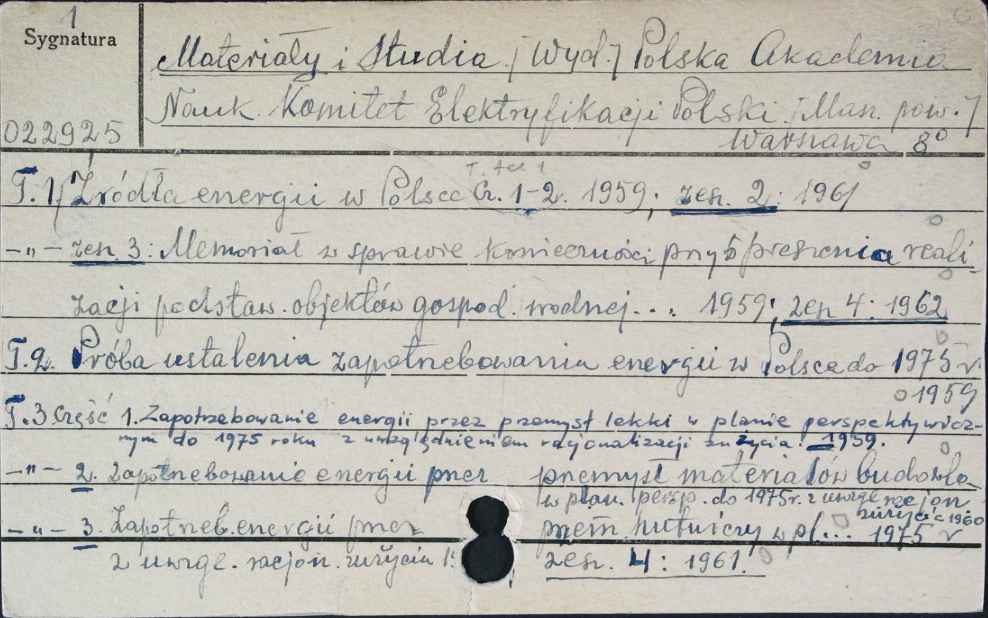 1
Sygnatura
022925
Materiały i Studia. [Wyd.] Polska Akademia
Nauk. Komitet Elektryfikacji Polski. [Masz. pow.]
Warszawa 8°
T. 1
T. 1, Źródła energii w Polsce Cz. 1-2. 1959; zesz. 2: 1961
-„- zesz. 3: Memoriał w sprawie konieczności przyśpieszenia reali-
zacji podstaw. objektów gospod. wodnej... 1959; zesz 4: 1962
T. 2. Próba ustalenia zapotrzebowania energii w Polsce do 1975 r.
1959
T. 3 Część 1. Zapotrzebowanie energii przez przemysł lekki w planie perspektywicz-
nym do 1975 roku z uwzględnieniem racjonalizacji zużycia. 1959.
-„- 2. Zapotrzebowanie energii przez przemysł materiałów budowla
w plan. persp. do 1975 r. z uwzgl racjon
zużycia 1960
-„- 3. Zapotrzeb. energii przez przem hutniczy w pl... 1975 r
z uwzgl. racjon. zużycia zesz. 4: 1961.